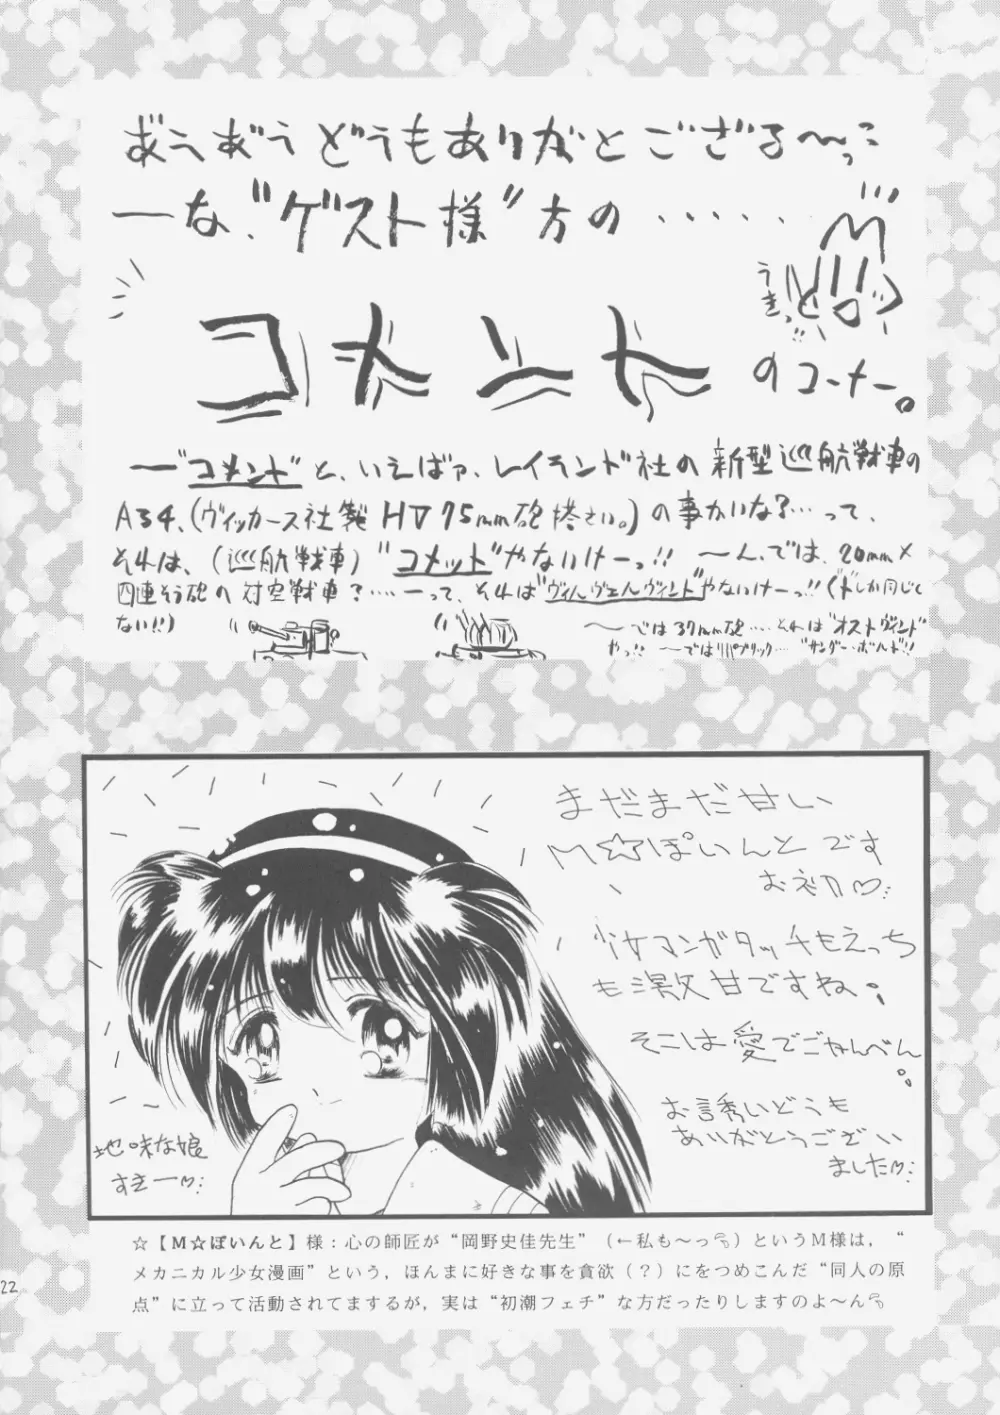 どうもありがとござる〜っ
ーな、"ゲスト様"方の‥‥‥
うきっ
コメント
のコーナー。
ー"コメンド"と、いえばァ、レイランド社の新型巡航戦車の
A34、(ヴィッカース社製HV75mm砲搭さい。)の事かいな?…って、
それは、(巡航戦車)"コメット"やないけーっ!! 〜ん、では、20mm×
四連そう砲の対空戦車?……ーって、それは"ヴィルヴェルヴィント"やないけーっ!!(ドしか同じく
ない!!)
〜では37mm砲……それは"オストヴィンド"
やっ!! 〜ではリパブリック…"サンダー・ボルト"!!
まだまだ甘い
M☆ぽいんとです
おネカ
少女マンガタッチもえっち
も激甘ですね。
そこは愛でごかんべん
お誘いどうも
ありがとうござい
ました
地味な娘
すきー
☆【M☆ぽいんと】様：心の師匠が"岡野史佳先生"(←私も〜っ)というM様は，"
メカニカル少女漫画"という，ほんまに好きな事を貪欲(?)にをつめこんだ"同人の原
点"に立って活動されてまするが，実は"初潮フェチ"な方だったりしますのよ〜ん
22